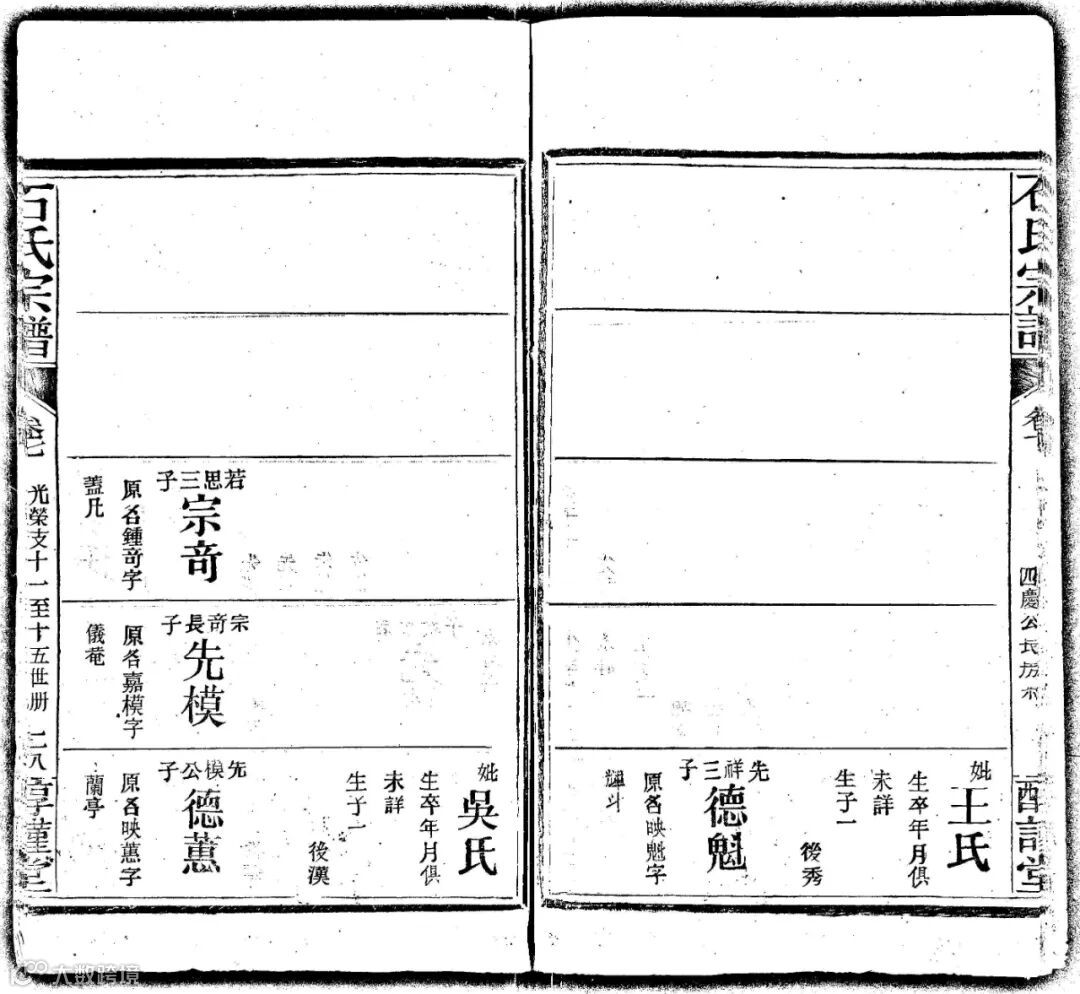 石氏宗譜
四慶公長房
妣
王氏
生卒年月俱
未詳
生子一
後秀
先祥三子
德魁
原名映魁字
輝斗
妣
吳氏
生卒年月俱
未詳
生子一
後漢
若思三子
宗奇
原名鍾奇字
蓋凡
宗奇長子
先模
原名嘉模字
儀菴
先模公子
德蕙
原名映蕙字
蘭亭
石氏宗譜
卷七
光榮支十一至十五世册
二八
大数跨境